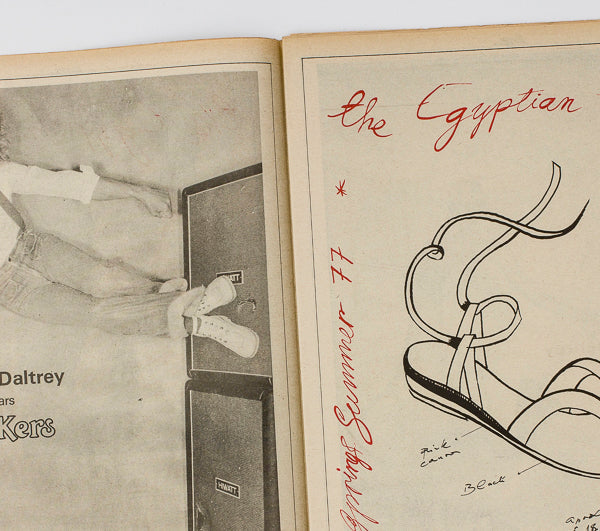 HIWATT
Daltrey
ars
Kers
HIWATT
the Egyptian
Spring Summer 77 *
Black